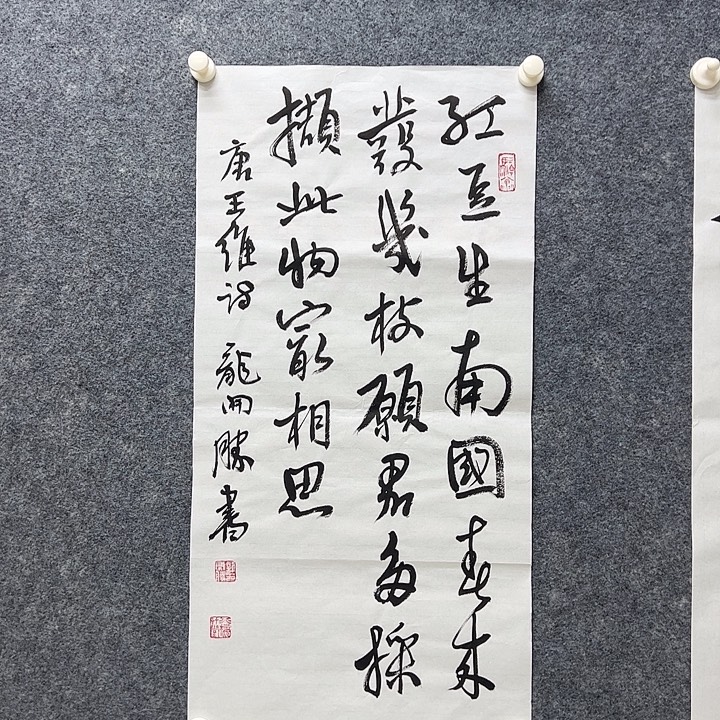 红豆生南國春来
發幾枝願君多採
擷此物最相思
唐王维诗 龍開勝書